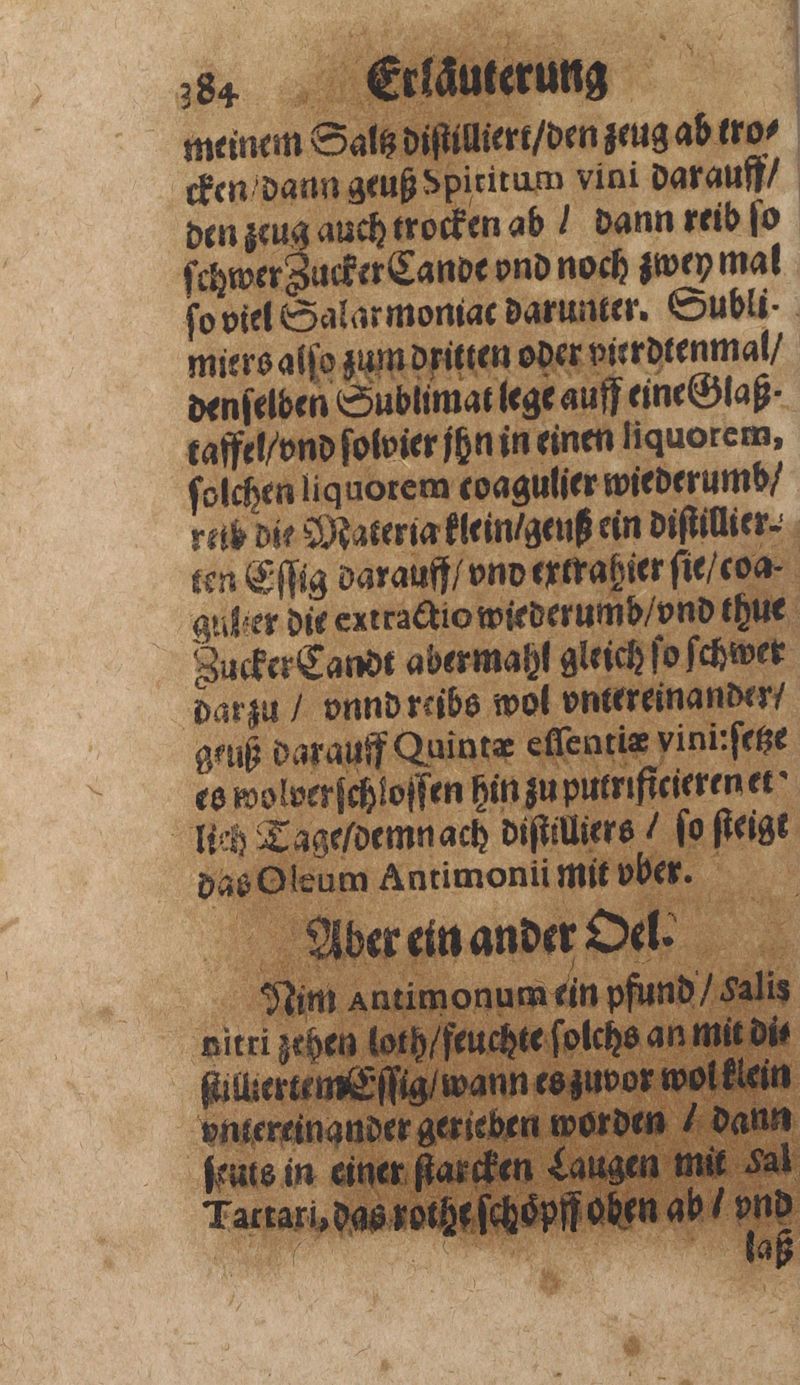 384 Erläuterung
meinem Saltz distilliert/den zeug ab tro-
cken/dann geuß Spiritum vini darauff/
den zeug auch trocken ab / dann reib so
schwer Zucker Cande vnd noch zwey mal
so viel Salarmoniac darunter. Subli-
miers also zum dritten oder vierdtenmal/
denselben Sublimat lege auff eine Glaß-
taffel/vnd solvier jhn in einen liquorem,
solchen liquorem coagulier wiederumb/
reib die Materia klein/geuß ein distillier-
ten Essig darauff/vnd extrahier sie/coa-
gulier die extractio wiederumb/vnd thue
Zucker Candt abermahl gleich so schwer
darzu / vnnd reibs wol vntereinander/
geuß darauff Quintæ essentiæ vini: setze
es wolverschlossen hin zu putrificieren et-
lich Tage/demnach distilliers / so steigt
das Oleum Antimonii mit vber.
Aber ein ander Oel.
Nim Antimonum ein pfund / Salis
nitri zehen loth/feuchte solchs an mit di-
stilliertem Essig/wann es zuvor wol klein
vntereinander gerieben worden / dann
seuts in einer starcken Laugen mit Sal
Tartari, das rothe schöpff oben ab / vnd
laß